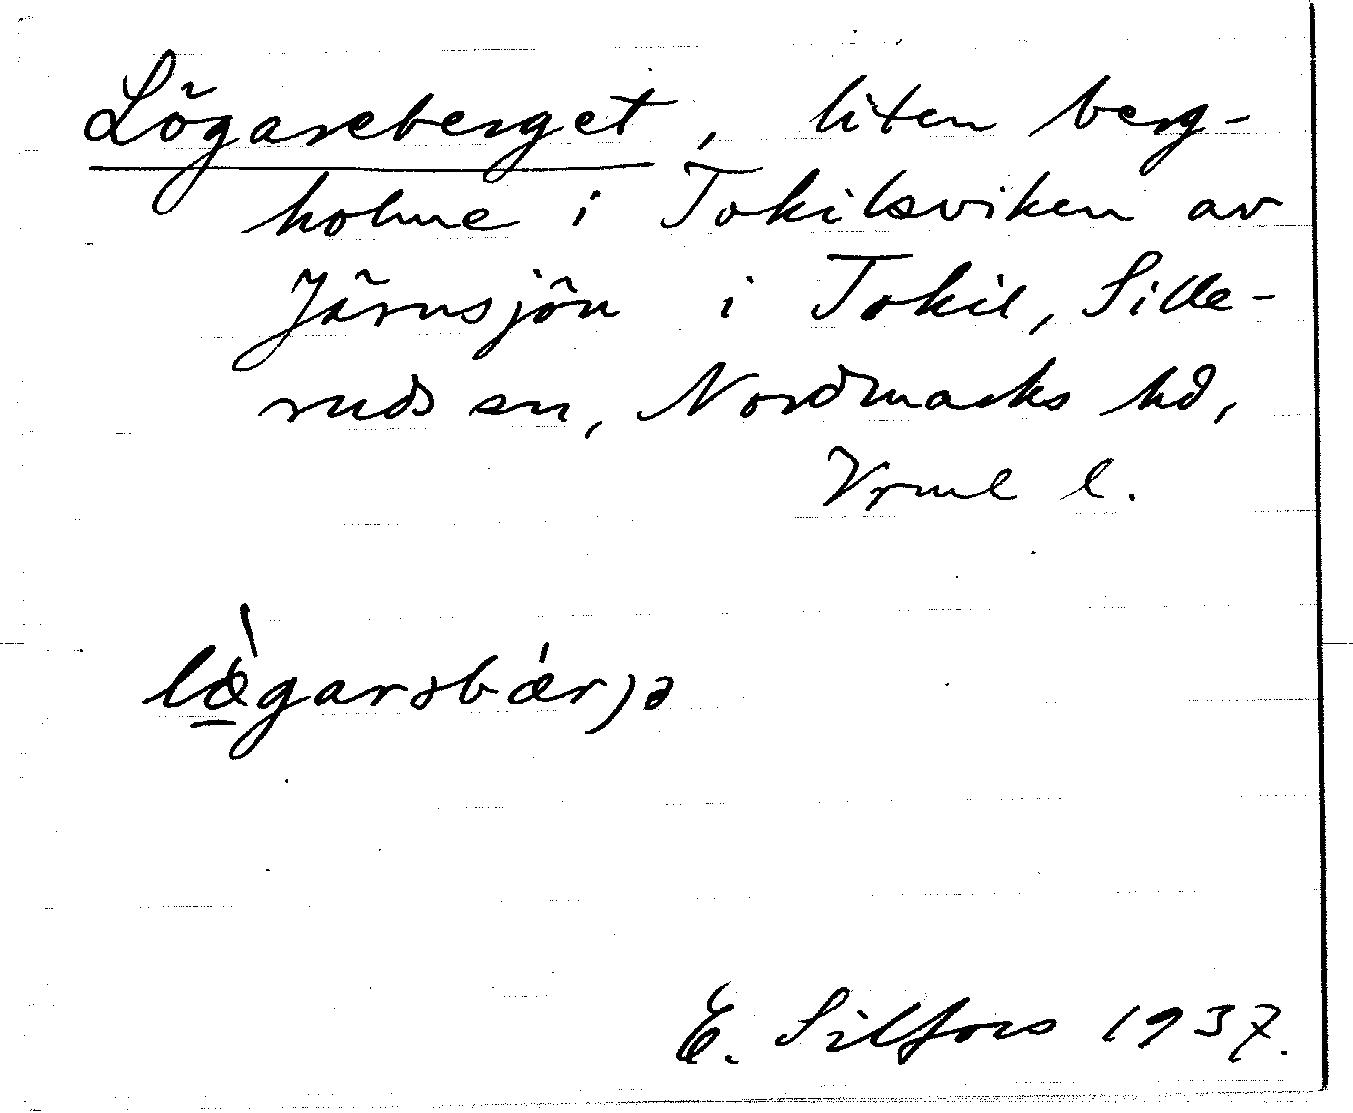 Lögareberget, liten berg-
holme i Tokilsviken av
Järnsjön i Tokil, Sille-
ruds sn, Nordmarks hd,
Vrml l.
E. Silfors 1937.